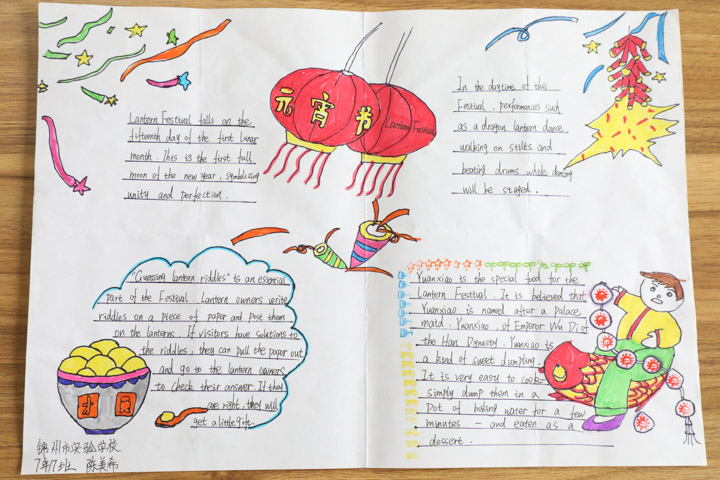 Lantern Festival falls on the
fifteenth day of the first lunar
month. This is the first full
moon of the new year, symbolizing
unity and perfection.
元宵节
Lantern Festival
In the daytime of the
Festival, performances such
as a dragon lantern dance,
walking on stilts and
beating drums while dancing
will be staged.
"Guessing lantern riddles" is an essential
part of the Festival. Lantern owners write
riddles on a piece of paper and post them
on the lanterns. If visitors have solutions to
the riddles, they can pull the paper out
and go to the lantern owners
to check their answer. If they
are right, they will
get a little gift.
Yuanxiao is the special food for the
Lantern Festival. It is believed that
Yuanxiao is named after a palace
maid, Yuanxiao, of Emperor Wu Di of
the Han Dynasty. Yuanxiao is
a kind of sweet dumpling.
It is very easy to cook-
simply dump them in a
pot of boiling water for a few
minutes - and eaten as a
dessert.
锦州市实验学校
7年17班 陈美希